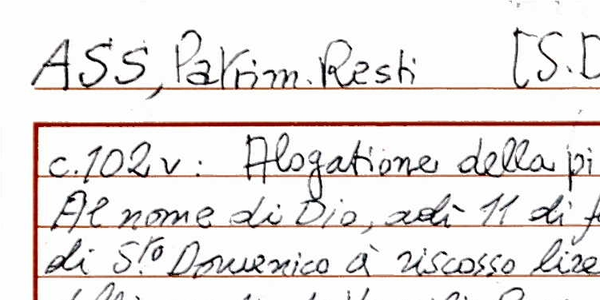 ASS, Patrim. Resti [S.D
c. 102v: Alogatione della pi
Al nome di Dio, adì 11 di f
di Sto Domenico à riscosso lire